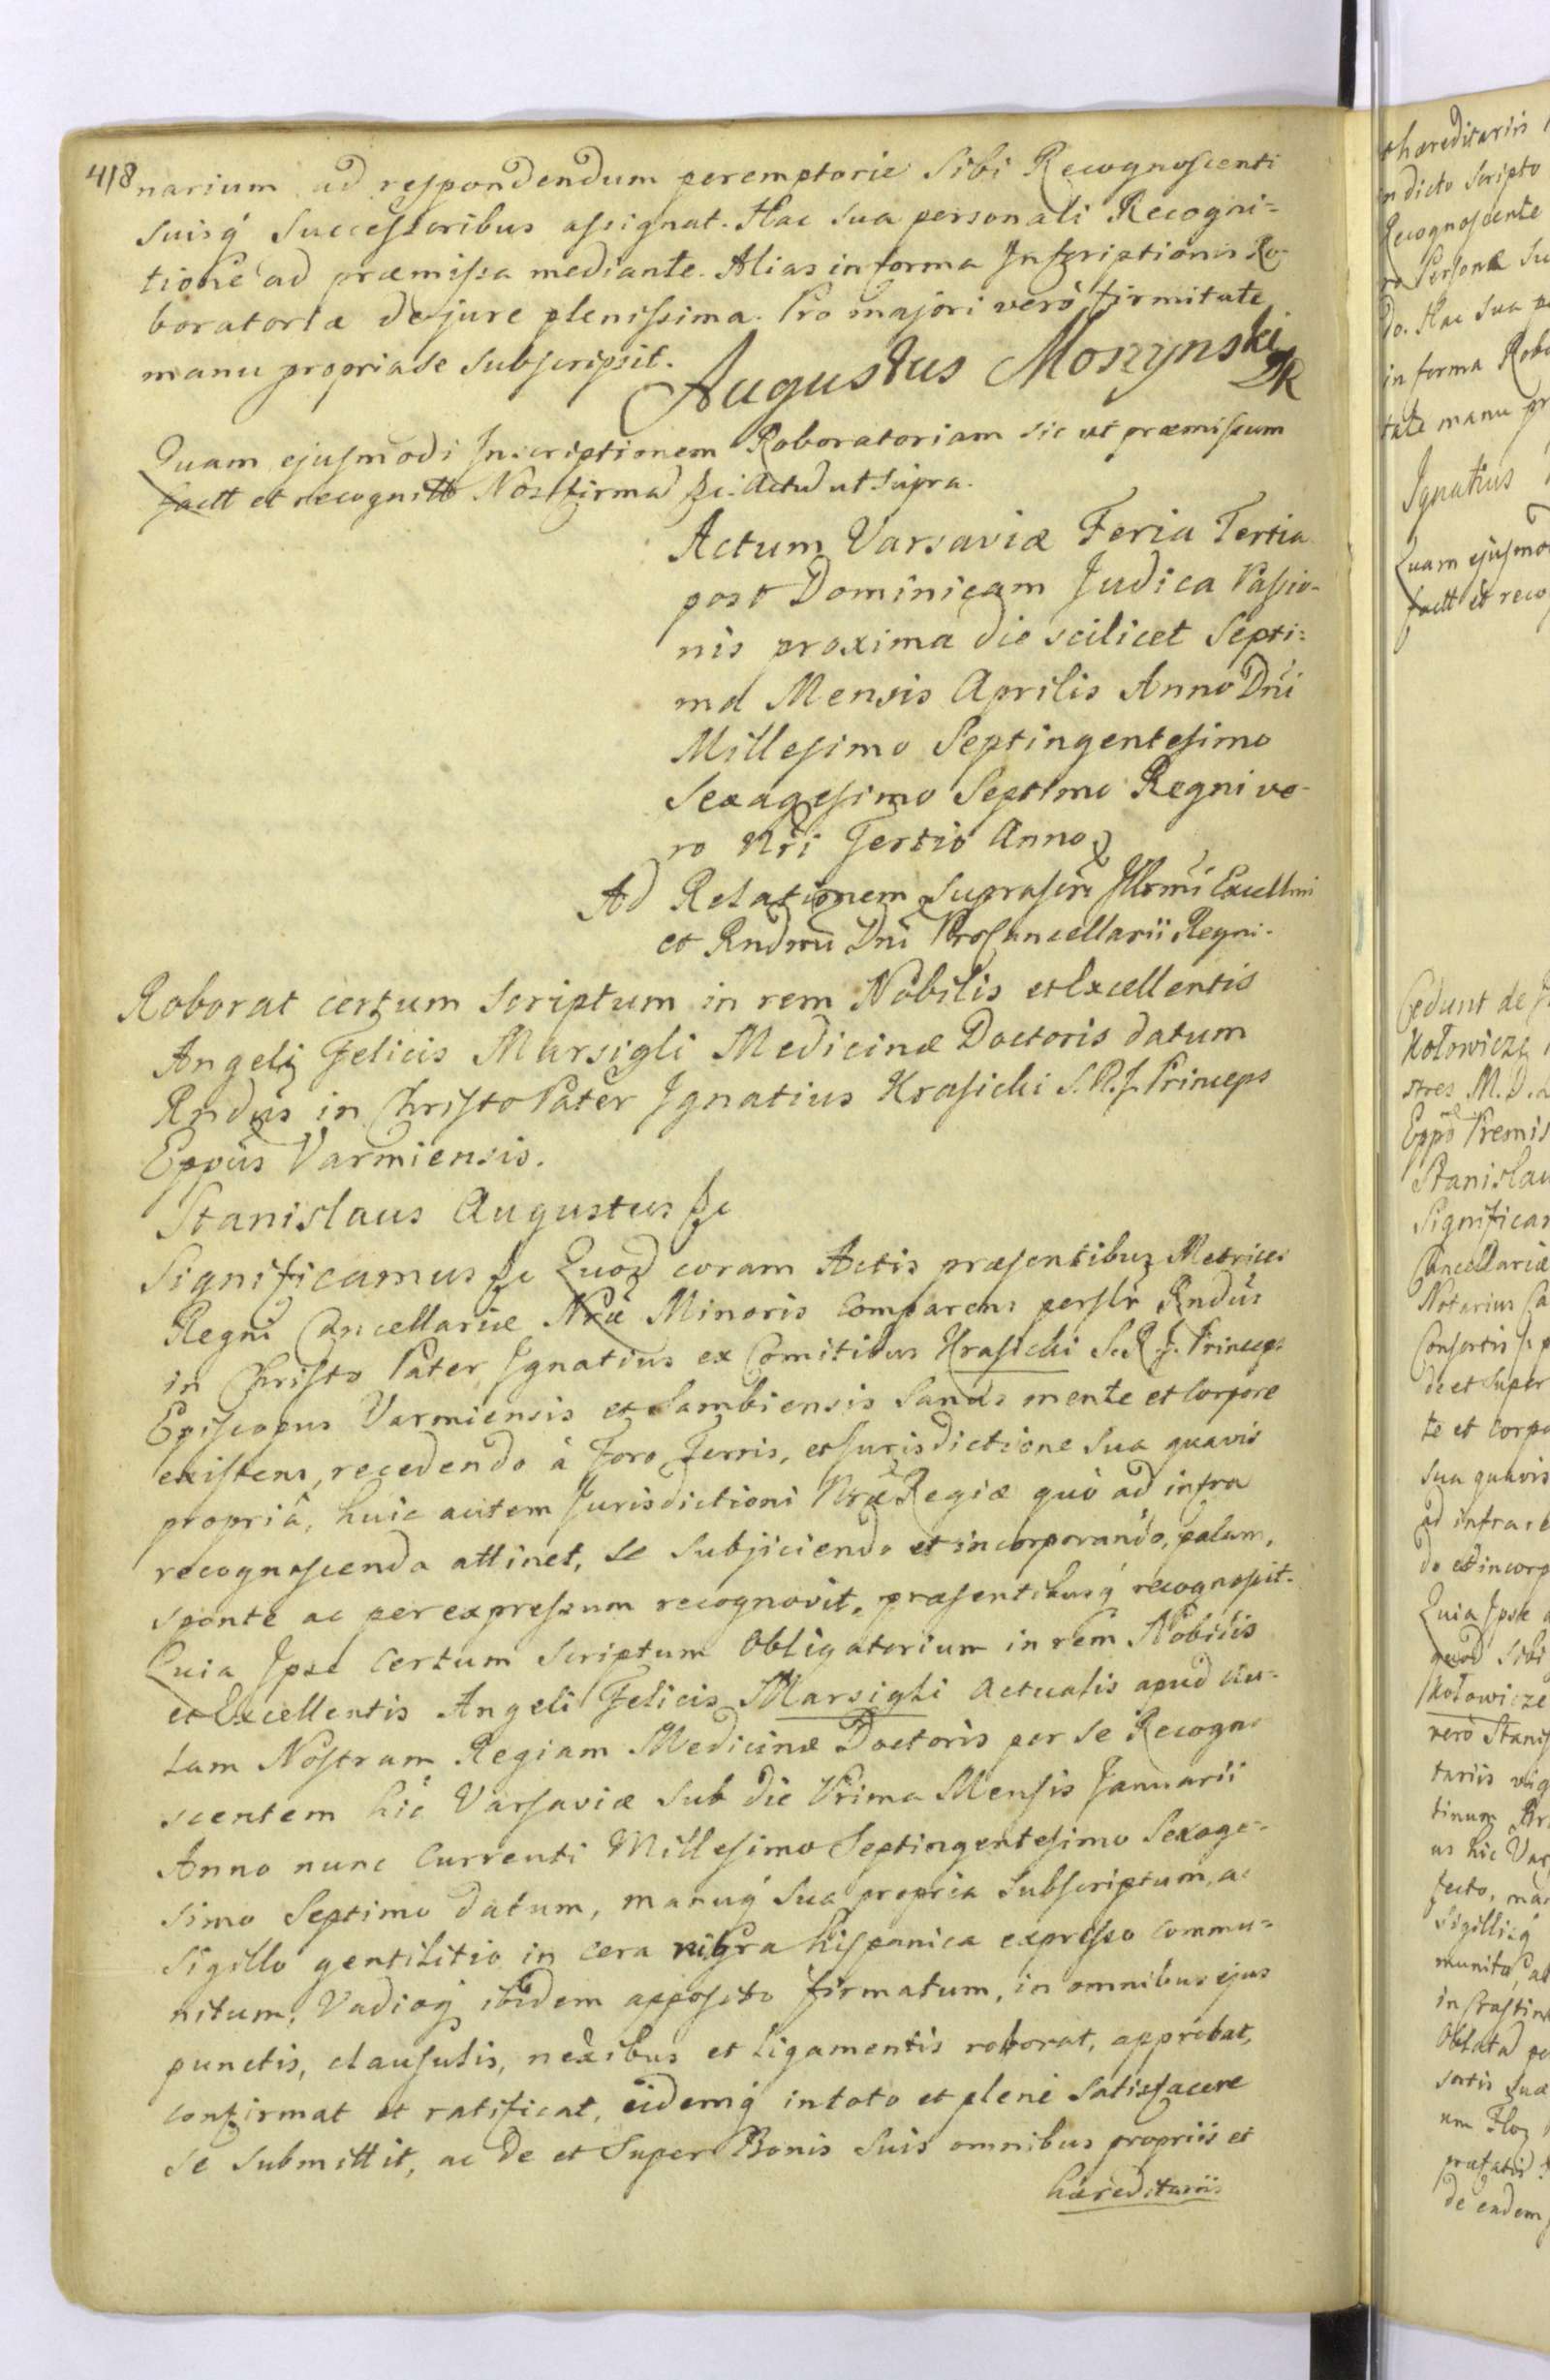 418
narium ad respondendum peremptorie Sibi Recognoscenti
suisq́ Successoribus assignat. Hac sua personali Recogni=
tione ad præmissa mediante. Alias in forma Inscriptionis Ro-
boratoriæ de jure plenissima. Pro majori verò firmitate
manu propria se Subscripsit.
Augustus Moszynski
Quam ejusmodi Inscriptionem Roboratoriam sic ut præmissum
factt et recognitt Nos firmad &c. Actud ut Supra.
Actum Varsaviæ Feria Tertia
post Dominicam Judica Passio-
nis proxima die scilicet Septi=
ma Mensis Aprilis Anno Dni
Millesimo Septingentesimo
Sexagesimo Septimo Regni ve-
ro Nri Tertio Anno
Ad Relationem Suprascri Illrmi Excellmi
et Rndmi Dni ProCancellarii Regni.
Roborat certum Scriptum in rem Nobilis et Excellentis
Angeli Felicis Marsigli Medicinæ Doctoris datum
Rndus in Christo Pater Ignatius Krasicki S.R.I. Princeps
Eppus Varmiensis.
Stanislaus Augustus &c
Significamus &c Quod coram Actis præsentibus Metrices
Regni Cancellariæ Nræ Minoris Comparens persltr Rndus
in Christo Pater Ignatius ex Comitibus Krasicki S.R.I. Princeps
Episcopus Varmiensis et Sambiensis Sanus mente et Corpore
existens, recedendo à Foro, Terris, et Jurisdictione Sua quavis
propriâ, huic autem Jurisdictioni Nræ Regiæ quò ad infra
recognoscenda attinet, se Subjiciendo et incorporando, palam,
sponte ac per expressum recognovit, præsentibusq́ recognoscit.
Quia Ipse Certum Scriptum Obligatorium in rem Nobilis
et Excellentis Angeli Felicis Marsigli Actualis apud Au=
lam Nostram Regiam Medicinæ Doctoris per se Recogno
scentem hic Varsaviæ Sub die Prima Mensis Januarii
Anno nunc Currenti Millesimo Septingentesimo Sexage=
simo Septimo datum, manuq́ Sua propria Subscriptum, ac
Sigillo gentilitio in cera nigra hispanica expresso commu=
nitum, Vadioq́ ibidem apposito firmatum, in omnibus ejus
punctis, clausulis, nexibus et ligamentis roborat, approbat,
confirmat et ratificat, eidemq́ in toto et plenè Satisfacere
se submittit, ac de et Super Bonis Suis omnibus propriis et
hæreditariis
hæreditariis
in dicto Scripto
Recognoscente
Personæ Su
do. Hac Sua
in forma Robo
tate manu pr
Ignatius
Quam ejusmo
factt et reco
Cedunt de
Kołowicze
stres M.D.
Eppo Premis
Stanislau
Significam
Cancellariæ
Notarius Ca
Consortis
de et Super
te et Corpo
sua quavis
ad infra re
do et incorp
Quia Ipse
quod Sibi
Kołowicze
verò Stanis
tariis
tinum
us hic Var
fecto,
Sigilliq́
munito,
in Crastin
Oblata
sortis
um
præfatis
de eadem